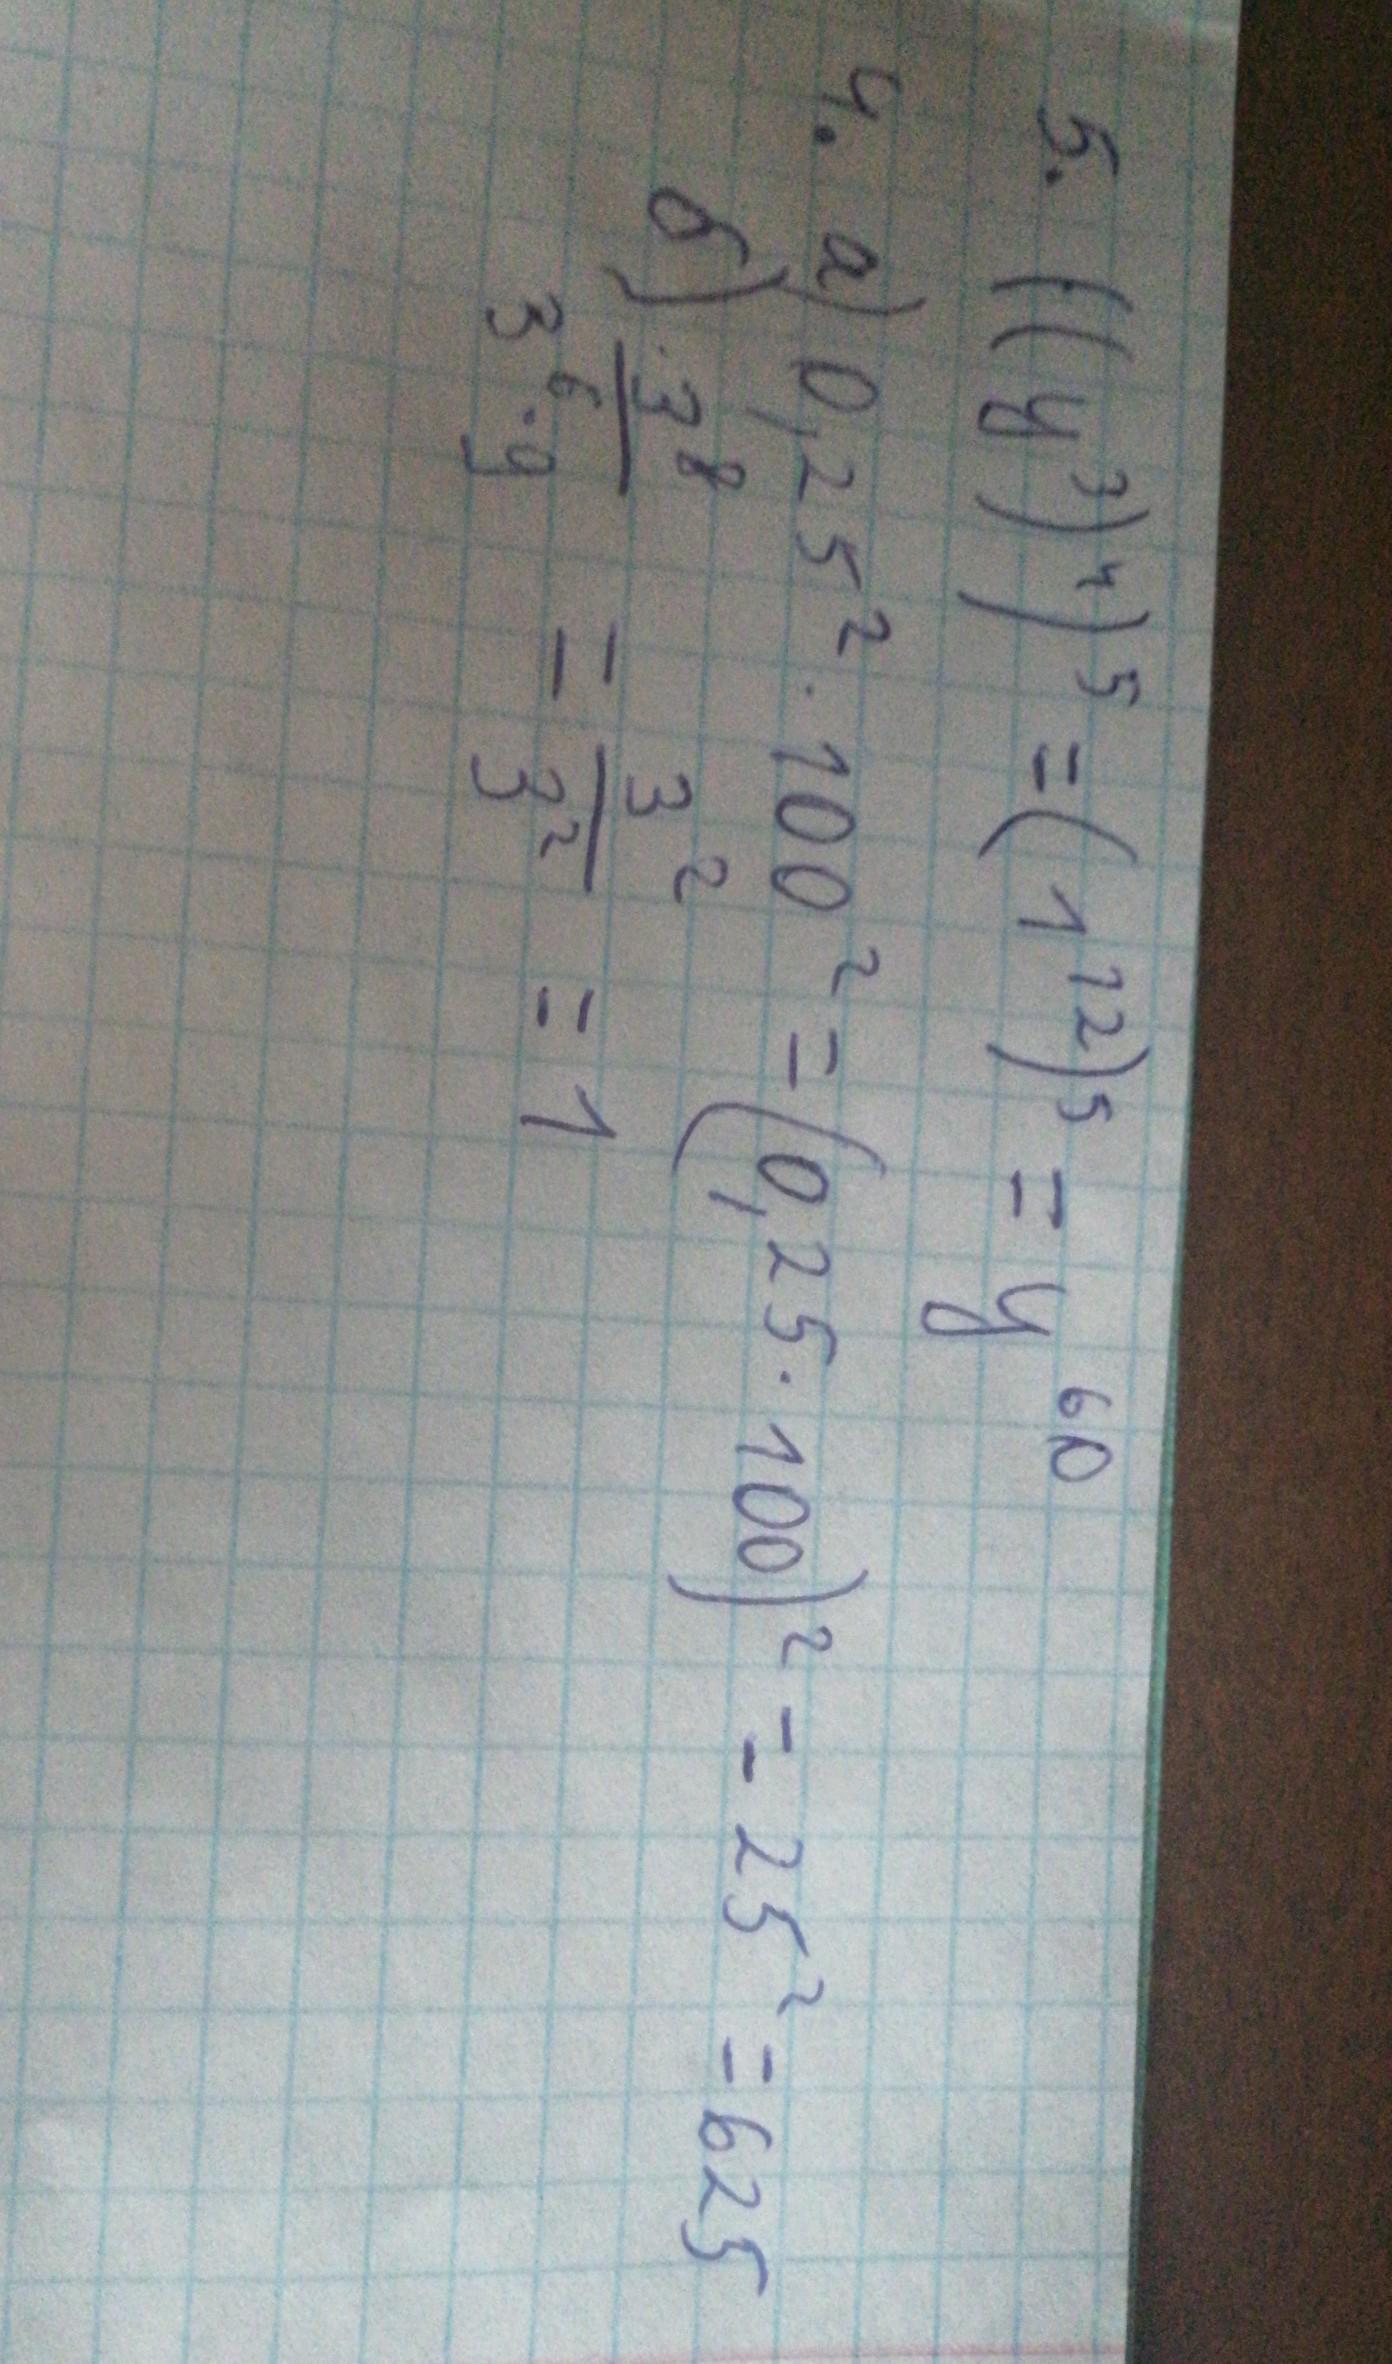 5. ((y³)⁴)⁵ = (1¹²)⁵ = y⁶⁰
4. а) 0,25² · 100² = (0,25 · 100)² = 25² = 625
б) 3⁸ / 3⁶ · 9 = 3² / 3² = 1